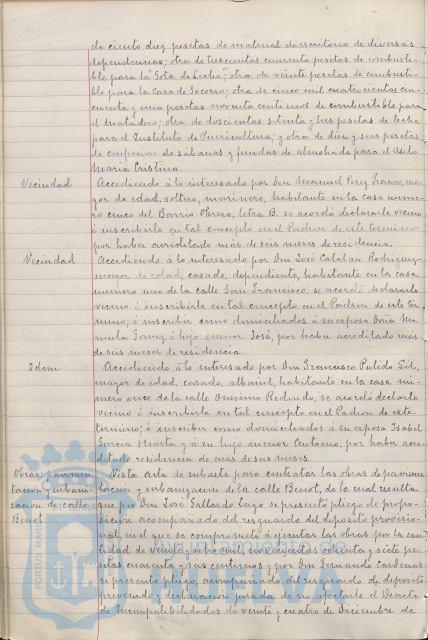 de ciento diez pesetas de material de escritorio de diversas
dependencias; otra de trescientas cuarenta pesetas de combusti-
ble para la "Gota de Leche"; otra de veinte pesetas de combusti-
ble para la Casa de Socorro; otra de cinco mil cuatrocientas cin-
cuenta y una pesetas noventa centimos de combustible para
el Matadero; otra de doscientas setenta y tres pesetas de leche
para el Instituto de Puericultura; y otra de diez y seis pesetas
de confeccion de sábanas y fundas de almohada para el Asilo
Maria Cristina.
Vecindad Accediendo á lo interesado por Don Manuel Perez Franco, ma-
yor de edad, soltero, marinero, habitante en la casa nume-
ro cinco del Barrio Obrero, letra B. se acordó declararle vecino
é inscribirle en tal concepto en el Padron de este termino
por haber acreditado más de seis meses de residencia.
Vecindad Accediendo á lo interesado por Don José Catalan Rodriguez
mayor de edad, casado, dependiente, habitante en la casa
numero uno de la calle San Francisco, se acordó declararle
vecino é inscribirle en tal concepto en el Padron de este ter-
mino; é inscribir como domiciliados á su esposa Doña Ma-
nuela Gomez é hijo menor José, por haber acreditado más
de seis meses de residencia.
Idem Accediendo á lo interesado por Don Francisco Pulido Gil,
mayor de edad, casado, albañil, habitante en la casa nú-
mero once de la calle Onesimo Redondo, se acordó declararle
vecino é inscribirle en tal concepto en el Padron de este
termino; é inscribir como domiciliados á su esposa Isabel
Garcia Huerta y á su hijo menor Antonio, por haber acre-
ditado residencia de mas de seis meses.
Obras pavimen- Vista Acta de subasta para contratar las obras de pavimen-
tacion y urbani- tacion y urbanizacion de la calle Benot, de la cual resulta
zacion de calle que por Don José Gallardo Lazo se presentó pliego de propo-
Benot. sicion acompañado del resguardo del deposito provisio-
nal, en el que se compromete á ejecutar las obras por la can-
tidad de veinte y ocho mil novecientas ochenta y siete pe-
setas cuarenta y seis centimos y por Don Fernando Cardenas
se presentó pliego, acompañado del resguardo de deposito
prevenido y declaracion jurada de no afectarle el Decreto
de Incompatibilidades de veinte y cuatro de Diciembre de